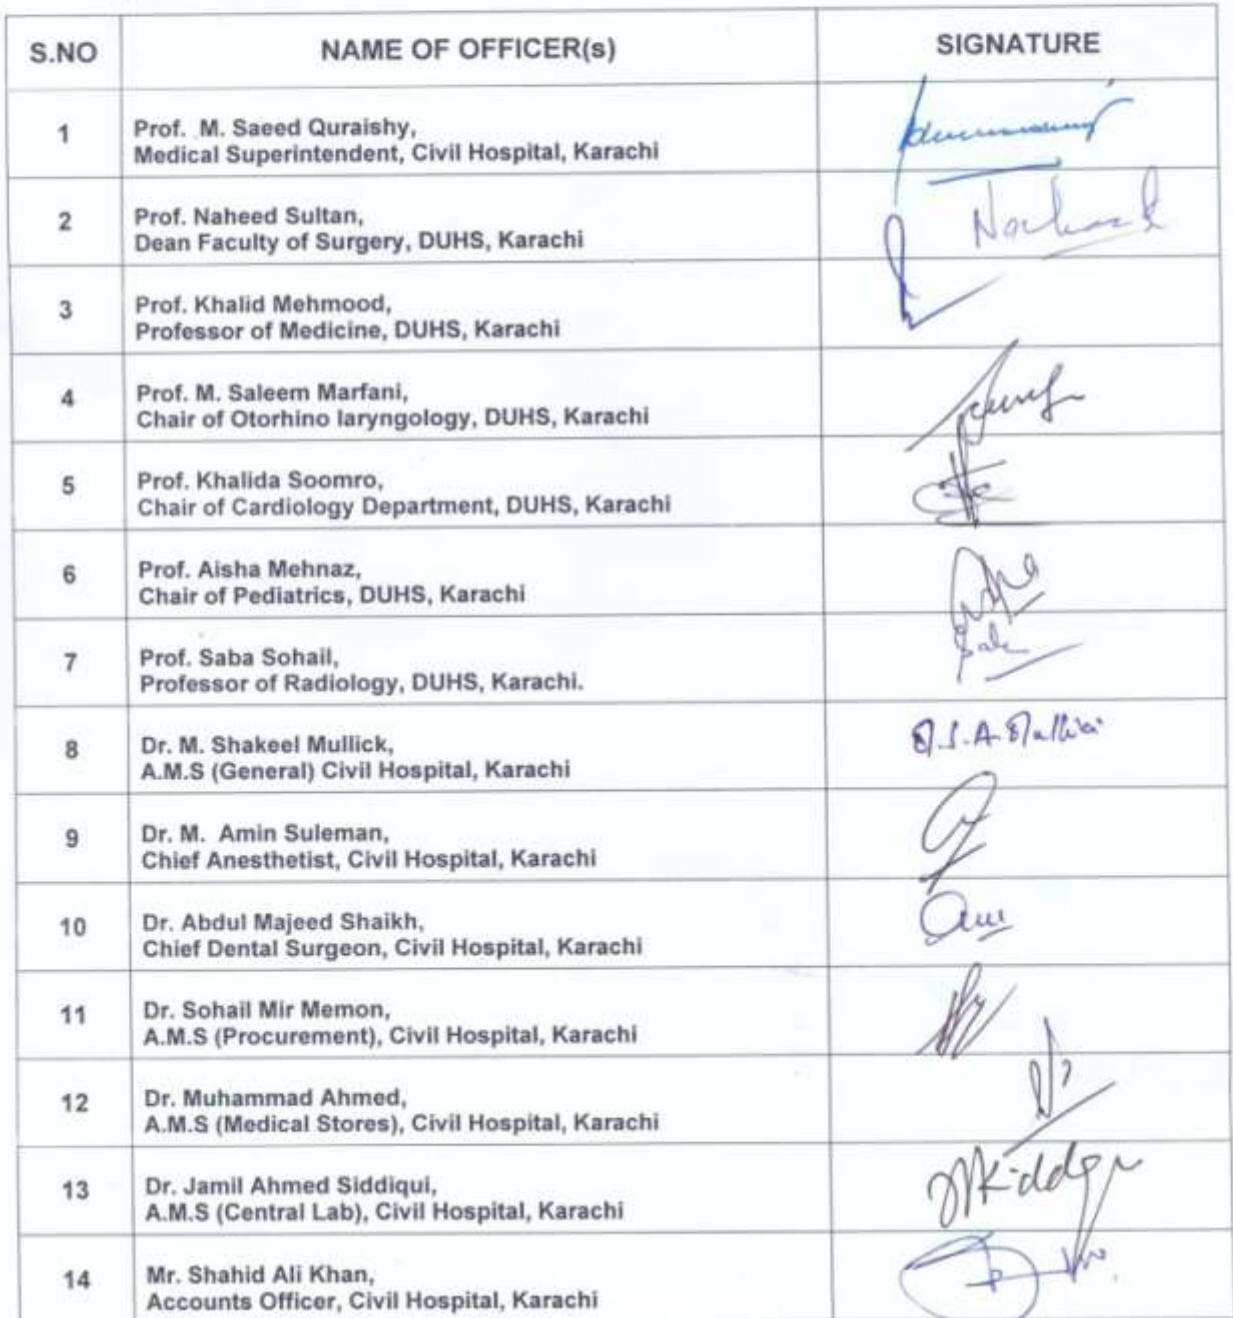 S.NO NAME OF OFFICER(s) SIGNATURE
1 Prof. M. Saeed Quraishy,
Medical Superintendent, Civil Hospital, Karachi
2 Prof. Naheed Sultan,
Dean Faculty of Surgery, DUHS, Karachi
3 Prof. Khalid Mehmood,
Professor of Medicine, DUHS, Karachi
4 Prof. M. Saleem Marfani,
Chair of Otorhino laryngology, DUHS, Karachi
5 Prof. Khalida Soomro,
Chair of Cardiology Department, DUHS, Karachi
6 Prof. Aisha Mehnaz,
Chair of Pediatrics, DUHS, Karachi
7 Prof. Saba Sohail,
Professor of Radiology, DUHS, Karachi.
8 Dr. M. Shakeel Mullick,
A.M.S (General) Civil Hospital, Karachi
9 Dr. M. Amin Suleman,
Chief Anesthetist, Civil Hospital, Karachi
10 Dr. Abdul Majeed Shaikh,
Chief Dental Surgeon, Civil Hospital, Karachi
11 Dr. Sohail Mir Memon,
A.M.S (Procurement), Civil Hospital, Karachi
12 Dr. Muhammad Ahmed,
A.M.S (Medical Stores), Civil Hospital, Karachi
13 Dr. Jamil Ahmed Siddiqui,
A.M.S (Central Lab), Civil Hospital, Karachi
14 Mr. Shahid Ali Khan,
Accounts Officer, Civil Hospital, Karachi